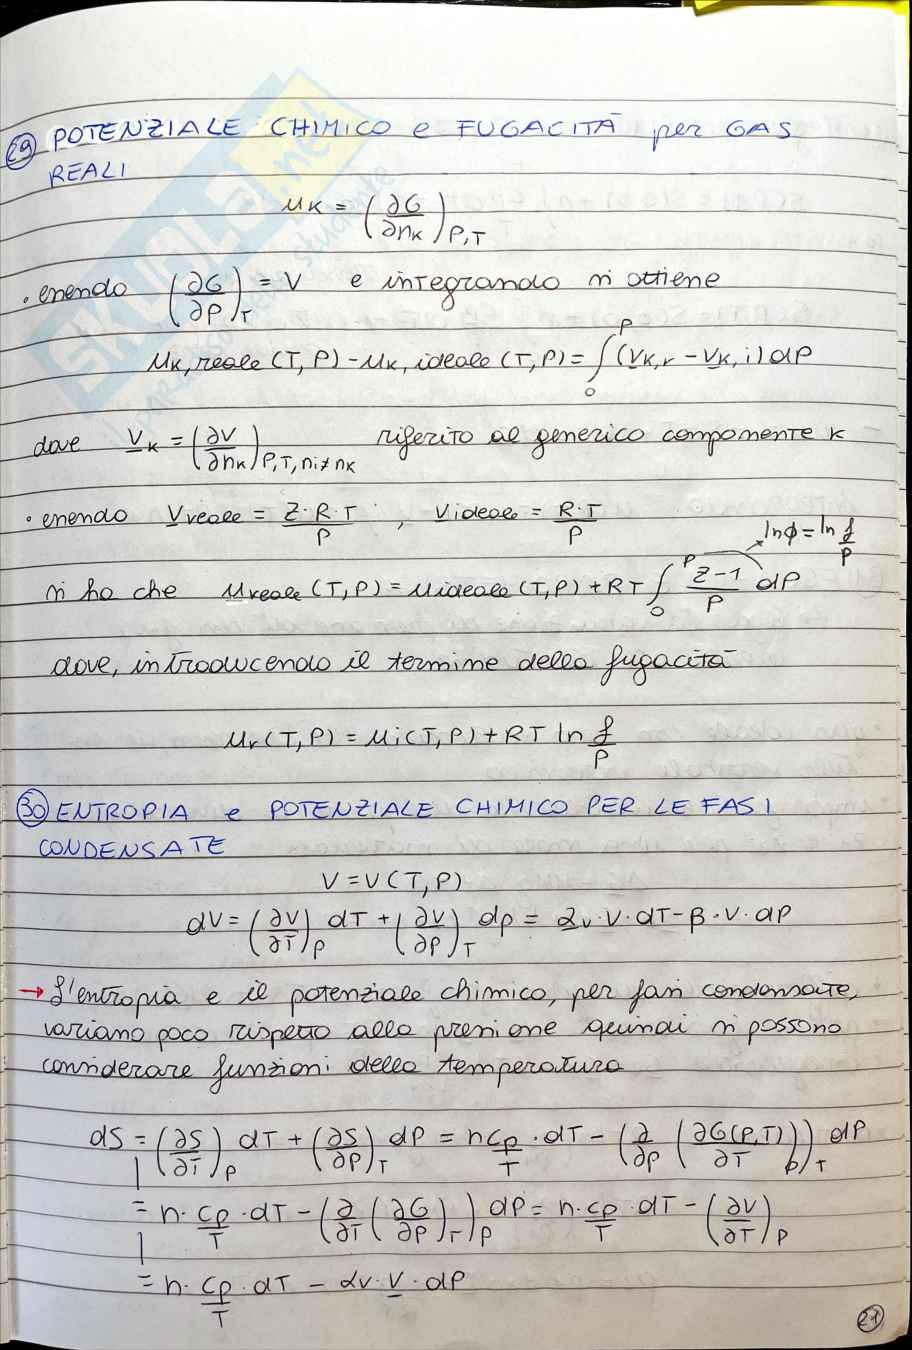 29 POTENZIALE CHIMICO e FUGACITÀ per GAS
REALI
μK = (∂G/∂nK)P,T
• essendo (∂G/∂P)T = V e integrando si ottiene
μK,reale (T,P) - μK,ideale (T,P) = ∫0^P (VK,r - VK,i) dP
dove VK = (∂V/∂nK)P,T,ni≠nK riferito al generico componente K
• essendo Vreale = Z·R·T/P , Videale = R·T/P
lnϕ = ln f/P
si ha che μreale (T,P) = μideale (T,P) + RT ∫0^P Z-1/P dP
dove, introducendo il termine della fugacità
μr(T,P) = μi(T,P) + RT ln f/P
30 ENTROPIA e POTENZIALE CHIMICO PER LE FASI
CONDENSATE
V = V(T,P)
dV = (∂V/∂T)P dT + (∂V/∂P)T dp = αv·V·dT - β·V·dP
→ L'entropia e il potenziale chimico, per fasi condensate,
variano poco rispetto alla pressione quindi si possono
considerare funzioni della temperatura
dS = (∂S/∂T)P dT + (∂S/∂P)T dP = n cp/T · dT - (∂/∂P (∂G(P,T)/∂T)P)T dP
= n · cp/T · dT - (∂/∂T (∂G/∂P)T)P dP = n · cp/T · dT - (∂V/∂T)P
= n · cp/T · dT - αv · V · dP
21
SKUOLA.net